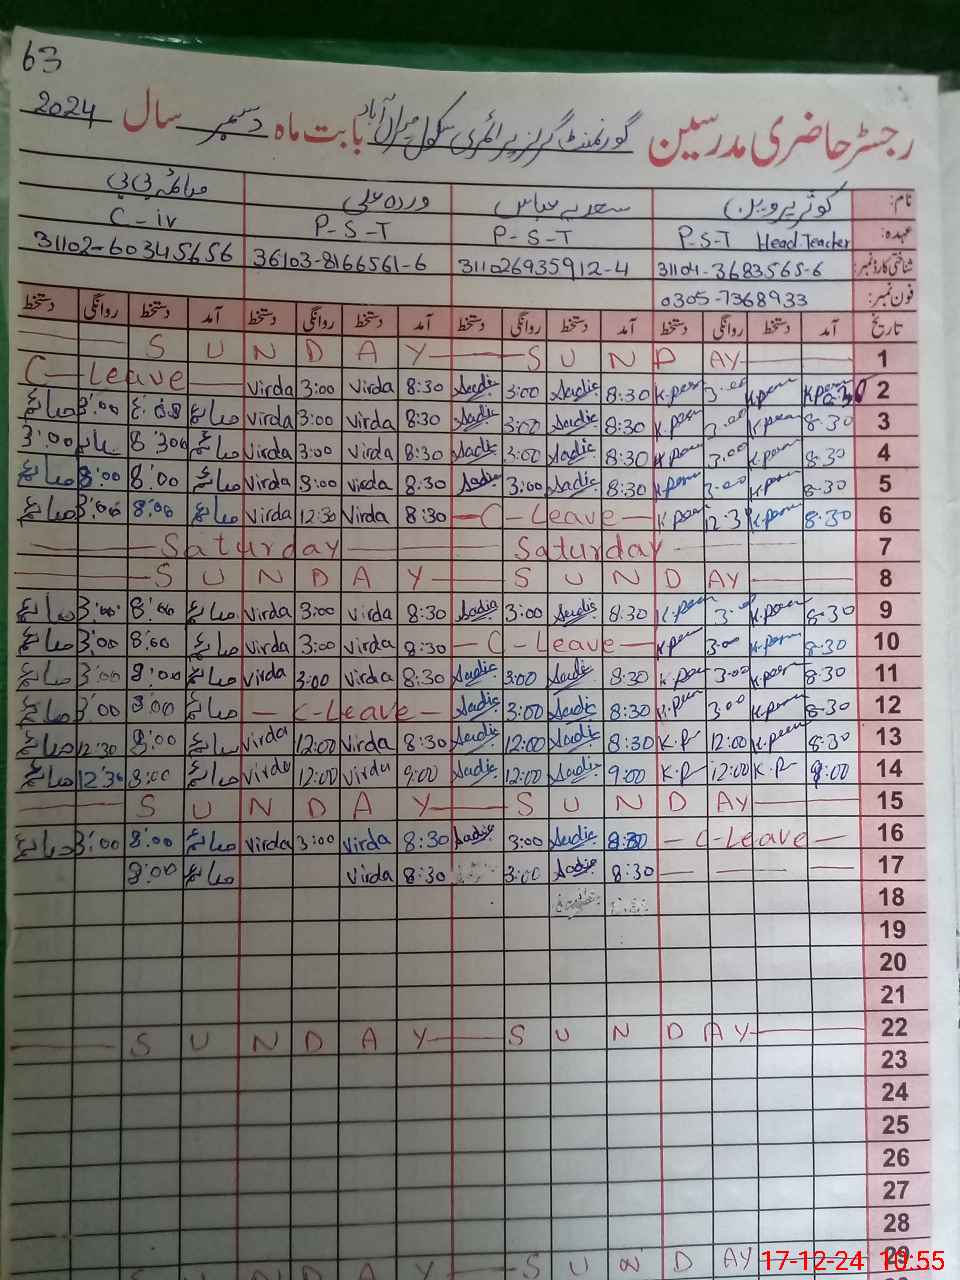 63
رجسٹر حاضری مدرسین گورنمنٹ گرلز پرائمری سکول آباد بابت ماہ دسمبر سال 2024
نام: کوثر پروین سعدیہ عباس وردہ علی صائمہ بی بی
عہدہ: P-S-T Head Teacher P-S-T P-S-T C-iv
شناختی کارڈ نمبر: 31104-3683565-6 311026935912-4 36103-8166561-6 31102-60345656
فون نمبر: 0305-7368933
تاریخ آمد دستخط روانگی دستخط آمد دستخط روانگی دستخط آمد دستخط روانگی دستخط آمد دستخط روانگی دستخط
S U N D A Y S U N D AY 1
C-Leave Virda 3:00 Virda 8:30 Sadie 3:00 Sadie 8:30 K.peen 3:00 K.peen 2
صائمہ 3:00 8:08 صائمہ Virda 3:00 Virda 8:30 Sadie 3:00 Sadie 8:30 K.peen 3:00 K.peen 8:30 3
3:00 8:300 صائمہ Virda 3:00 Virda 8:30 Sadie 3:00 Sadie 8:30 K.peen 3:00 K.peen 8:30 4
صائمہ 8:00 8:00 صائمہ Virda 3:00 Virda 8:30 Sadie 3:00 Sadie 8:30 K.peen 3:00 K.peen 8:30 5
صائمہ 3:00 8:00 صائمہ Virda 12:30 Virda 8:30 C-Leave K.peen 12:3 K.peen 8:30 6
Saturday Saturday 7
S U N D A Y S U N D AY 8
صائمہ 3:00 8:00 صائمہ Virda 3:00 Virda 8:30 Sadie 3:00 Sadie 8:30 K.peen 3:0 K.peen 8:30 9
صائمہ 3:00 8:00 صائمہ Virda 3:00 Virda 8:30 C-Leave K.peen 3:00 K.peen 8:30 10
صائمہ 3:00 8:00 صائمہ Virda 3:00 Virda 8:30 Sadie 3:00 Sadie 8:30 K.peen 3:00 K.peen 8:30 11
صائمہ 3:00 8:00 صائمہ C-Leave Sadie 3:00 Sadie 8:30 K.peen 3:00 K.peen 8:30 12
صائمہ 12:30 8:00 صائمہ Virda 12:00 Virda 8:30 Sadie 12:00 Sadie 8:30 K.P 12:00 K.peen 8:30 13
صائمہ 12:30 8:00 صائمہ Virda 12:00 Virda 9:00 Sadie 12:00 Sadie 9:00 K.P 12:00 K.P 9:00 14
S U N D A Y S U N D AY 15
صائمہ 3:00 8:00 صائمہ Virda 3:00 Virda 8:30 Sadie 3:00 Sadie 8:30 C-Leave 16
8:00 صائمہ Virda 8:30 3:00 Sadie 8:30 17
18
19
20
21
S U N D A Y S U N D AY 22
23
24
25
26
27
28
S U N D A Y S U N D AY 29
17-12-24 10:55